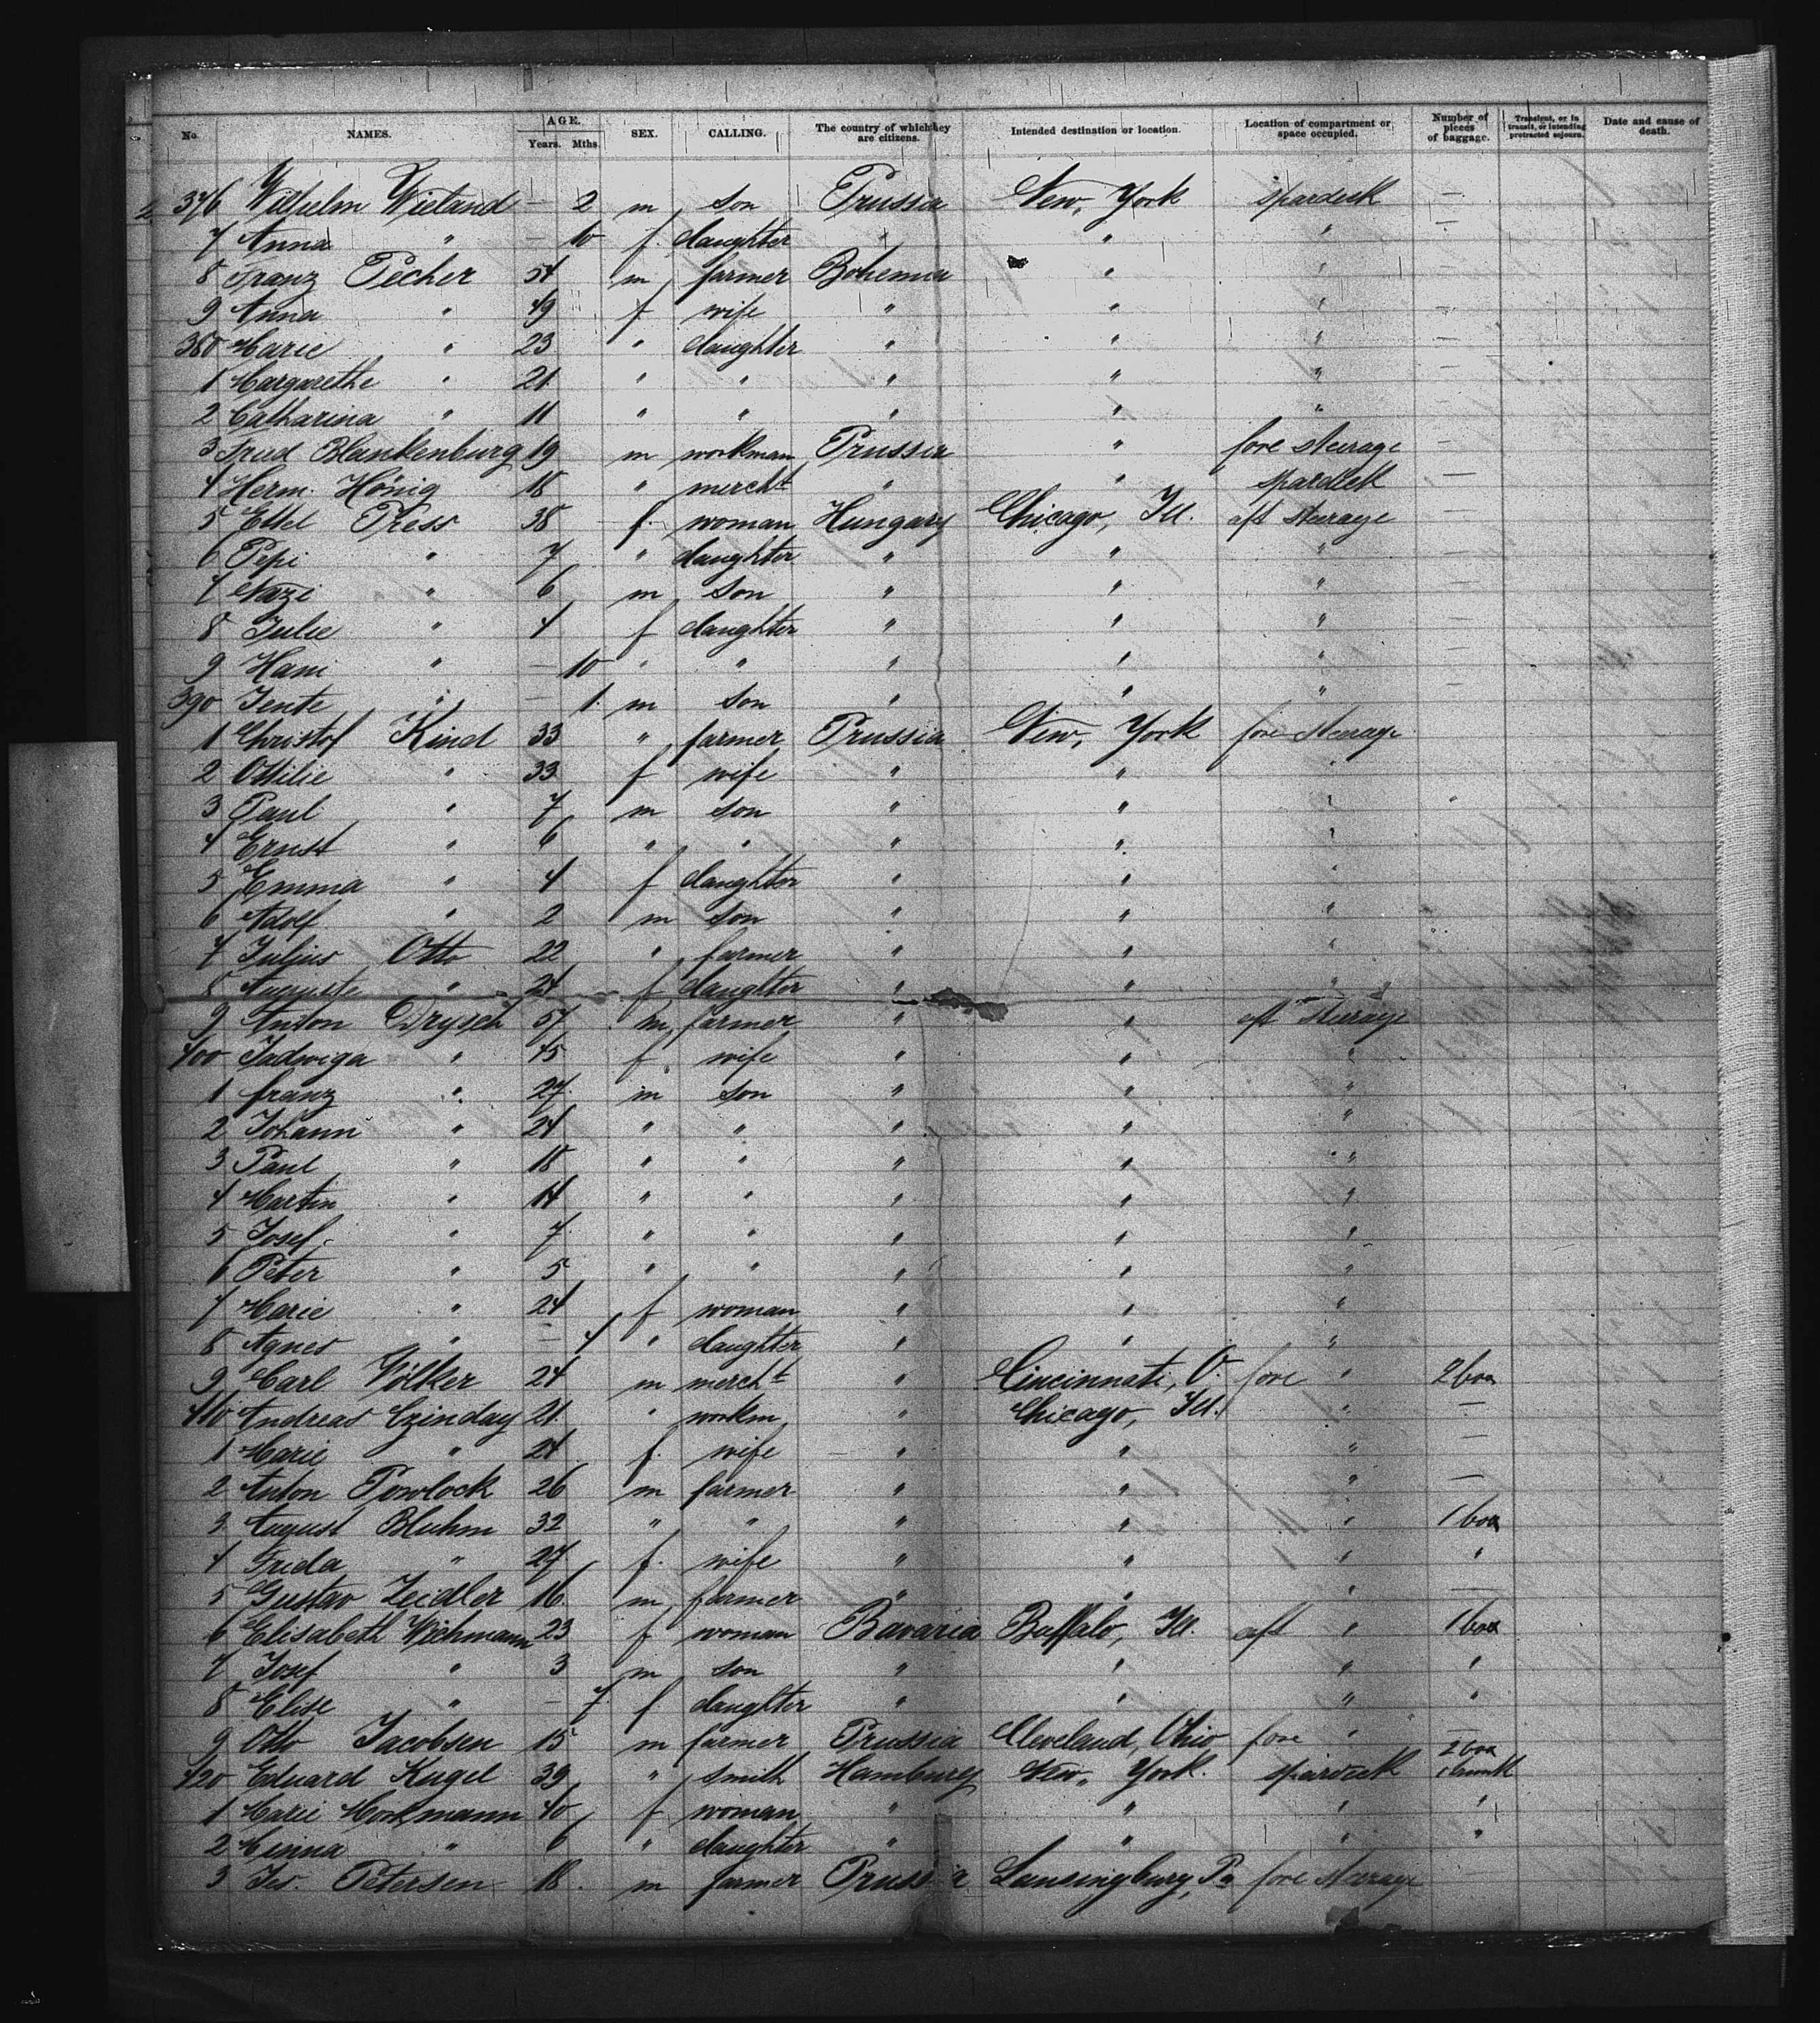 No NAMES. AGE. Years. Mths. SEX. CALLING. The country of which they are citizens. Intended destination or location. Location of compartment or space occupied. Number of pieces of baggage. Transient, or in transit, or intending protracted sojourn. Date and cause of death.
376 Wilhelm Wieland — 2 m son Prussia New York spardeck —
7 Anna " — 10 f. daughter " " " —
8 Franz Pecher 54 m farmer Bohemia " " —
9 Anna " 49 f wife " " " —
380 Marie " 23 " daughter " " " —
1 Margarethe " 21 " " " " " —
2 Catharina " 11 " " " " " —
3 Fried Blankenburg 19 m workman Prussia " fore steerage —
4 Herm. Hönig 18 " mercht " " spardeck —
5 Ettel Press 38 f. woman Hungary Chicago, Ill. aft steerage —
6 Pepi " 7 " daughter " " " —
7 Nazi " 6 m son " " " —
8 Julie " 4 f daughter " " " —
9 Hani " — 10 " " " " " —
390 Jente " — 1 m son " " " —
1 Christof Kind 33 " farmer Prussia New York fore steerage
2 Ottilie " 33 f wife " " "
3 Paul " 7 m son " " " "
4 Ernst " 6 " " " " "
5 Emma " 4 f daughter " " "
6 Adolf " 2 m son " " "
7 Julius Otto 22 " farmer " " "
8 Auguste " 24 f daughter " " "
9 Anton Drysch 57 m farmer " " aft steerage
400 Jadwiga " 45 f wife " " "
1 franz " 27 m son " " "
2 Johann " 24 " " " " "
3 Paul " 18 " " " " "
4 Martin " 14 " " " " "
5 Josef " 7 " " " " "
6 Peter " 5 " " " " "
7 Marie " 24 f woman " " "
8 Agnes " — 4 " daughter " " "
9 Carl Völker 24 m mercht " Cincinnati, O. fore " 2 box
410 Andreas Czinday 21 " workm. " Chicago, Ill. " —
1 Marie " 24 f. wife " " " —
2 Anton Powlock 26 m farmer " " " —
3 August Bluhm 32 " " " " " 1 box
4 Frida " 27 f. wife " " " "
5 Gustav Zeidler 16 m farmer " " " —
6 Elisabeth Wichmann 23 f woman Bavaria Buffalo, Ill. aft " 1 box
7 Josef " 3 m son " " " "
8 Elise " — 7 f. daughter " " " "
9 Otto Jacobsen 15 m farmer Prussia Cleveland, Ohio fore " —
420 Eduard Kugel 39 " smith Hamburg New York. spardeck 2 box 1 trunk
1 Marie Horkmann 40 f woman " " " "
2 Minna " 6 " daughter " " " "
3 Jes. Petersen 18 m farmer Prussia Lansingburg, Pa fore steerage